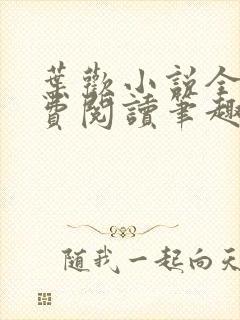 葉歡小說全
費閱讀筆趣
隨我一起向天